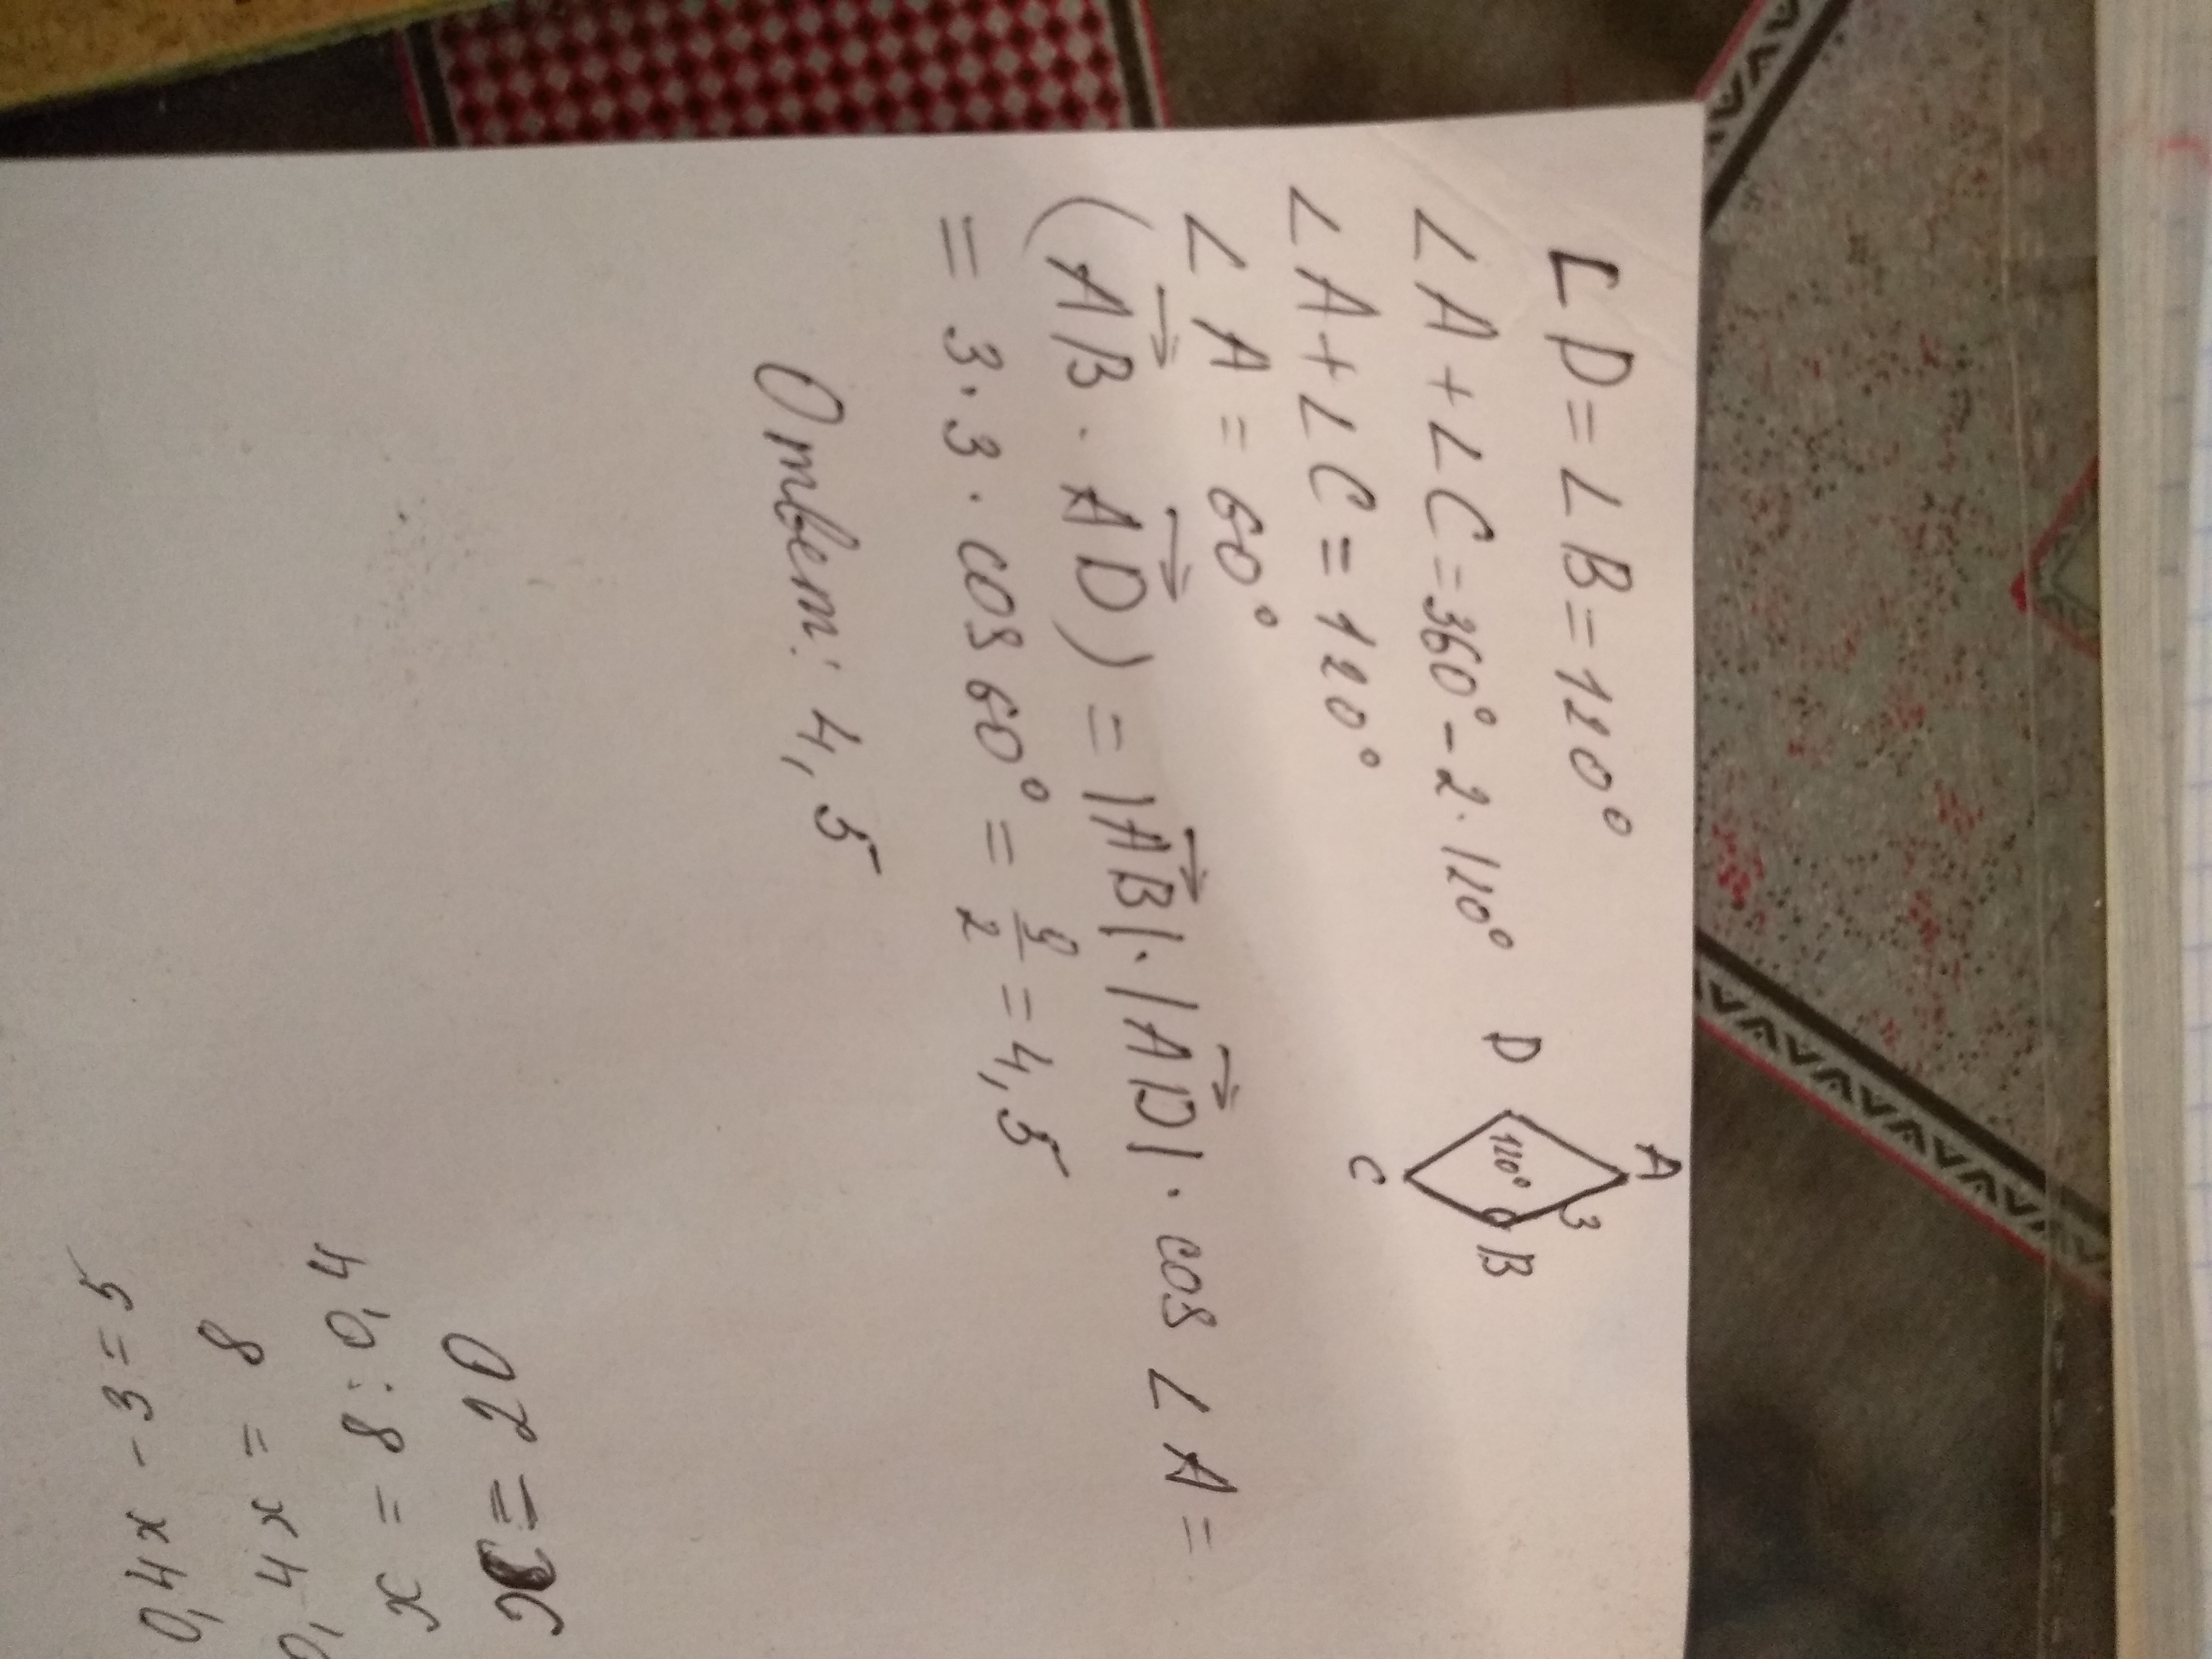 ∠D = ∠B = 120°
∠A + ∠C = 360° - 2 · 120°
∠A + ∠C = 120°
∠A = 60°
(AB · AD) = |AB| · |AD| · cos ∠A =
= 3 · 3 · cos 60° = 9/2 = 4,5
Ответ: 4,5
A
3
D
120°
B
C
0,4x - 3 = 5
0,4x = 8
x = 8 : 0,4
x = 20